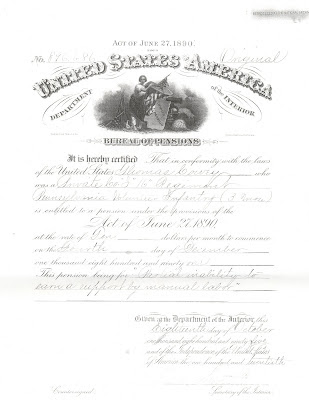 ACT OF JUNE 27, 1890.
No. Original
UNITED STATES OF AMERICA
DEPARTMENT OF THE INTERIOR
BUREAU OF PENSIONS
It is hereby certified That in conformity with the laws
of the United States Thomas who
was a Private Co Regiment
Pennsylvania Volunteer Infantry
is entitled to a pension under the provisions of the
Act of June 27, 1890.
at the rate of dollars per month to commence
on the fourth day of December
one thousand eight hundred and ninety one
This pension being for "Partial inability to
earn a support by manual labor"
Given at the Department of the Interior this
Eighteenth day of October
one thousand eight hundred and ninety five
and of the Independence of the United States
of America the one hundred and twentieth
Countersigned
Secretary of the Interior.